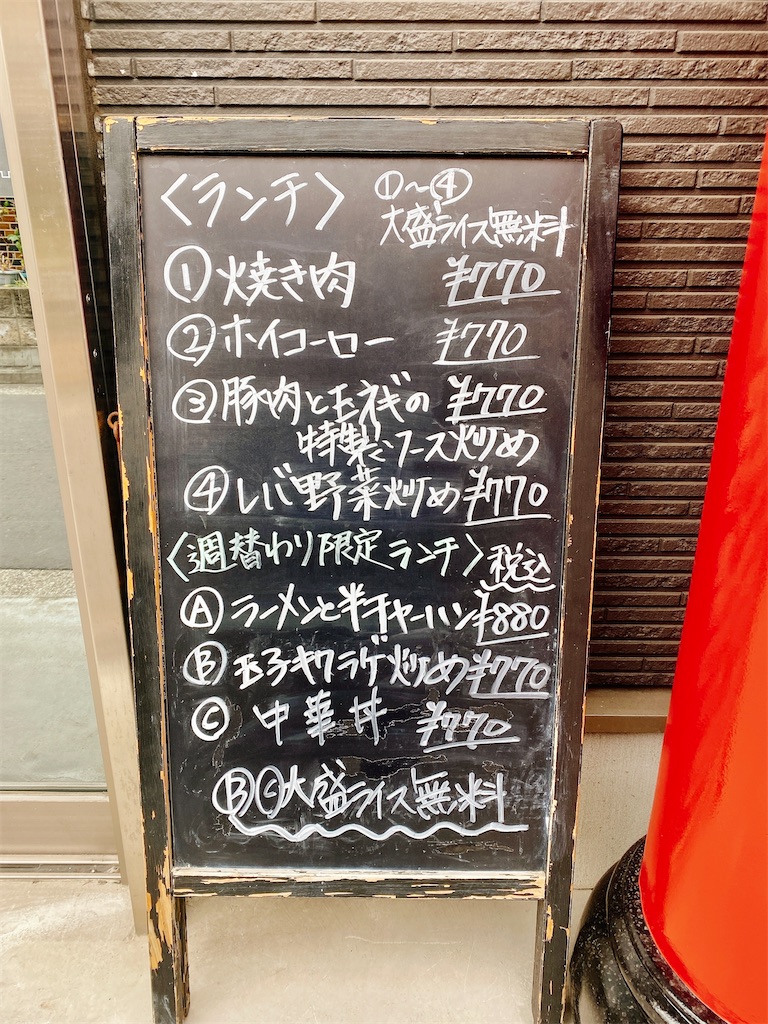 〈ランチ〉 ①〜④
大盛ライス無料
①焼き肉 ¥770
②ホイコーロー ¥770
③豚肉と玉ネギの ¥770
特製ソース炒め
④レバ野菜炒め ¥770
〈週替わり限定ランチ〉税込
Ⓐラーメンと半チャーハン ¥880
Ⓑ玉子キクラゲ炒め ¥770
Ⓒ中華丼 ¥770
ⒷⒸ大盛ライス無料